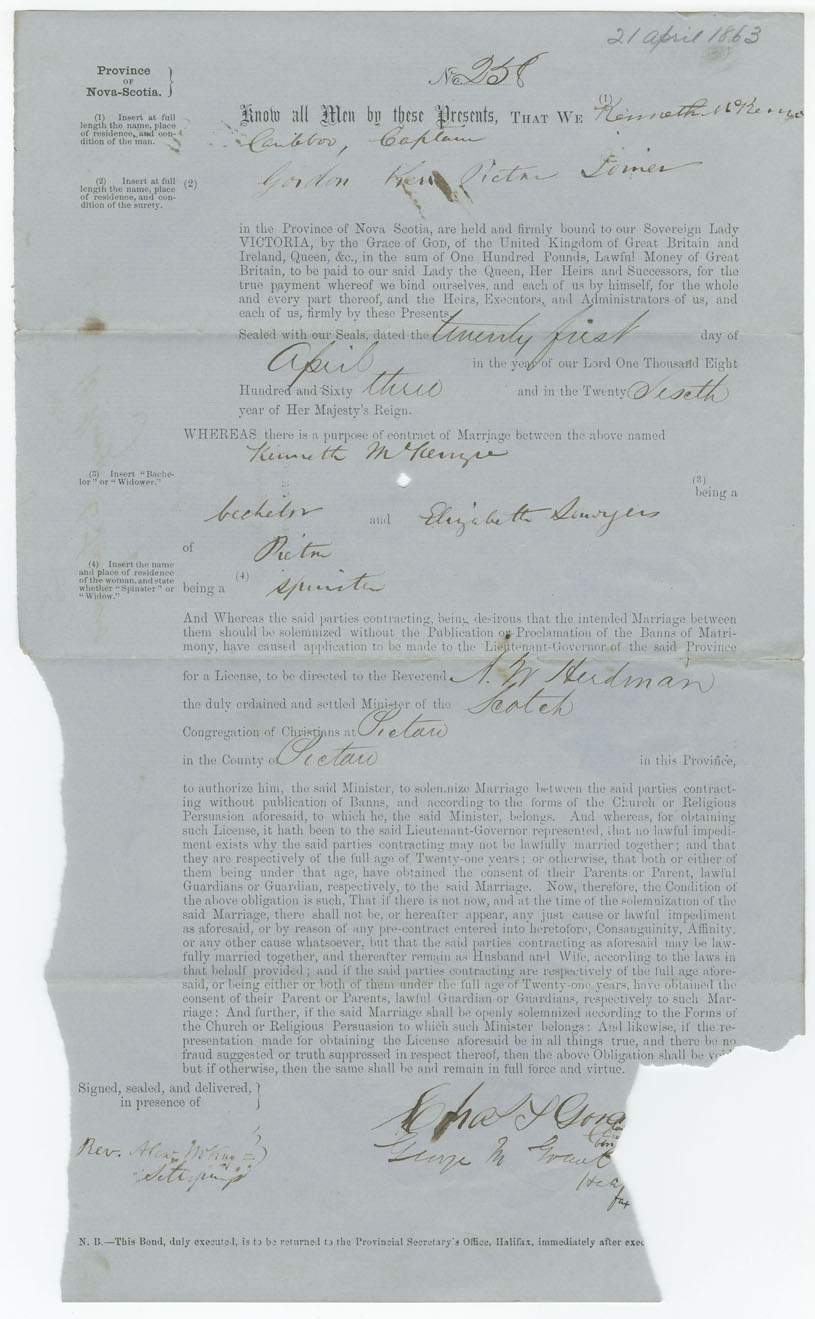 21 April 1863
No. 258
Province
OF
Nova-Scotia.
Know all Men by these Presents, THAT WE (1) Kenneth McKenzie
(1) Insert at full
length the name, place
of residence, and con-
dition of the man.
Caribboo, Captain
(2) Insert at full
length the name, place
of residence, and con-
dition of the surety.
(2) Gordon Kerr Pictou
in the Province of Nova Scotia, are held and firmly bound to our Sovereign Lady
VICTORIA, by the Grace of GOD, of the United Kingdom of Great Britain and
Ireland, Queen, &c., in the sum of One Hundred Pounds, Lawful Money of Great
Britain, to be paid to our said Lady the Queen, Her Heirs and Successors, for the
true payment whereof we bind ourselves, and each of us by himself, for the whole
and every part thereof, and the Heirs, Executors, and Administrators of us, and
each of us, firmly by these Presents.
Sealed with our Seals, dated the twenty first day of
April in the year of our Lord One Thousand Eight
Hundred and Sixty three and in the Twenty Sixth
year of Her Majesty's Reign.
WHEREAS there is a purpose of contract of Marriage between the above named
Kenneth McKenzie
(3) Insert "Bache-
lor" or "Widower."
(3)
being a
bachelor and Elizabeth Sawyers
of Pictou
(4) Insert the name
and place of residence
of the woman, and state
whether "Spinster" or
"Widow."
being a (4) spinster
And Whereas the said parties contracting, being desirous that the intended Marriage between
them should be solemnized without the Publication or Proclamation of the Banns of Matri-
mony, have caused application to be made to the Lieutenant-Governor of the said Province
for a License, to be directed to the Reverend A. W Herdman
the duly ordained and settled Minister of the Scotch
Congregation of Christians at Pictou
in the County of Pictou in this Province,
to authorize him, the said Minister, to solemnize Marriage between the said parties contract-
ing without publication of Banns, and according to the forms of the Church or Religious
Persuasion aforesaid, to which he, the said Minister, belongs. And whereas, for obtaining
such License, it hath been to the said Lieutenant-Governor represented, that no lawful impedi-
ment exists why the said parties contracting may not be lawfully married together; and that
they are respectively of the full age of Twenty-one years; or otherwise, that both or either of
them being under that age, have obtained the consent of their Parents or Parent, lawful
Guardians or Guardian, respectively, to the said Marriage. Now, therefore, the Condition of
the above obligation is such, That if there is not now, and at the time of the solemnization of the
said Marriage, there shall not be, or hereafter appear, any just cause or lawful impediment
as aforesaid, or by reason of any pre-contract entered into heretofore, Consanguinity, Affinity,
or any other cause whatsoever, but that the said parties contracting as aforesaid may be law-
fully married together, and thereafter remain as Husband and Wife, according to the laws in
that behalf provided; and if the said parties contracting are respectively of the full age afore-
said, or being either or both of them under the full age of Twenty-one years, have obtained the
consent of their Parent or Parents, lawful Guardian or Guardians, respectively to such Mar-
riage: And further, if the said Marriage shall be openly solemnized according to the Forms of
the Church or Religious Persuasion to which such Minister belongs: And likewise, if the re-
presentation made for obtaining the License aforesaid be in all things true, and there be no
fraud suggested or truth suppressed in respect thereof, then the above Obligation shall be void
but if otherwise, then the same shall be and remain in full force and virtue.
Signed, sealed, and delivered,
in presence of
George M Grant
Rev. Alex.
N. B.—This Bond, duly executed, is to be returned to the Provincial Secretary's Office, Halifax, immediately after exec